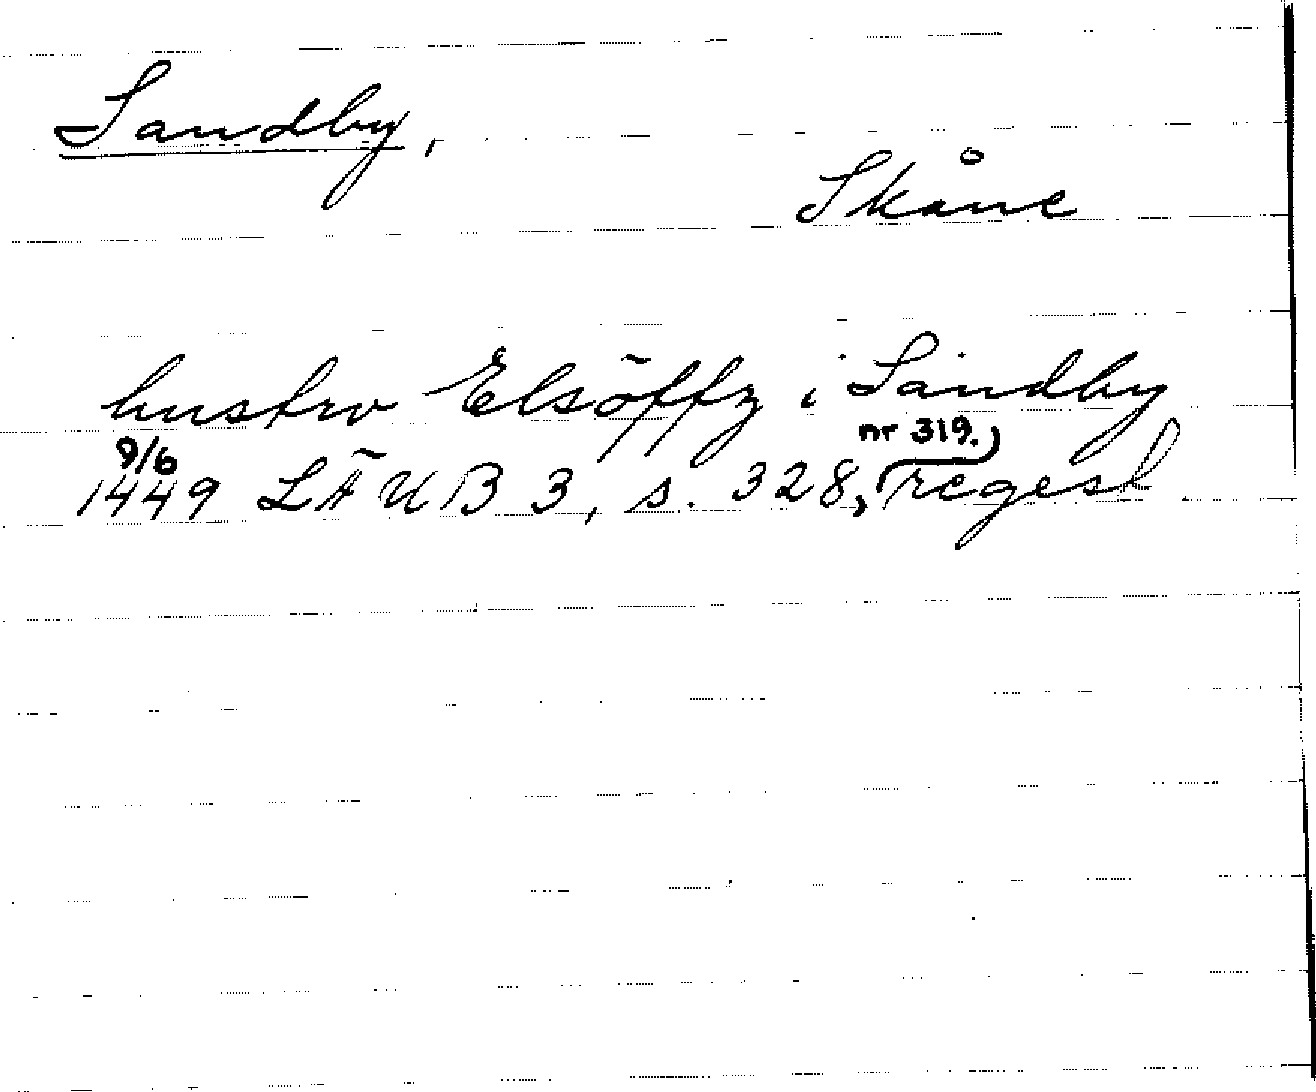 Sandby,
Skåne
hustrv Elsöffz i Sandby
9/6 nr 319.)
1449 LÄUB 3, s. 328, regest